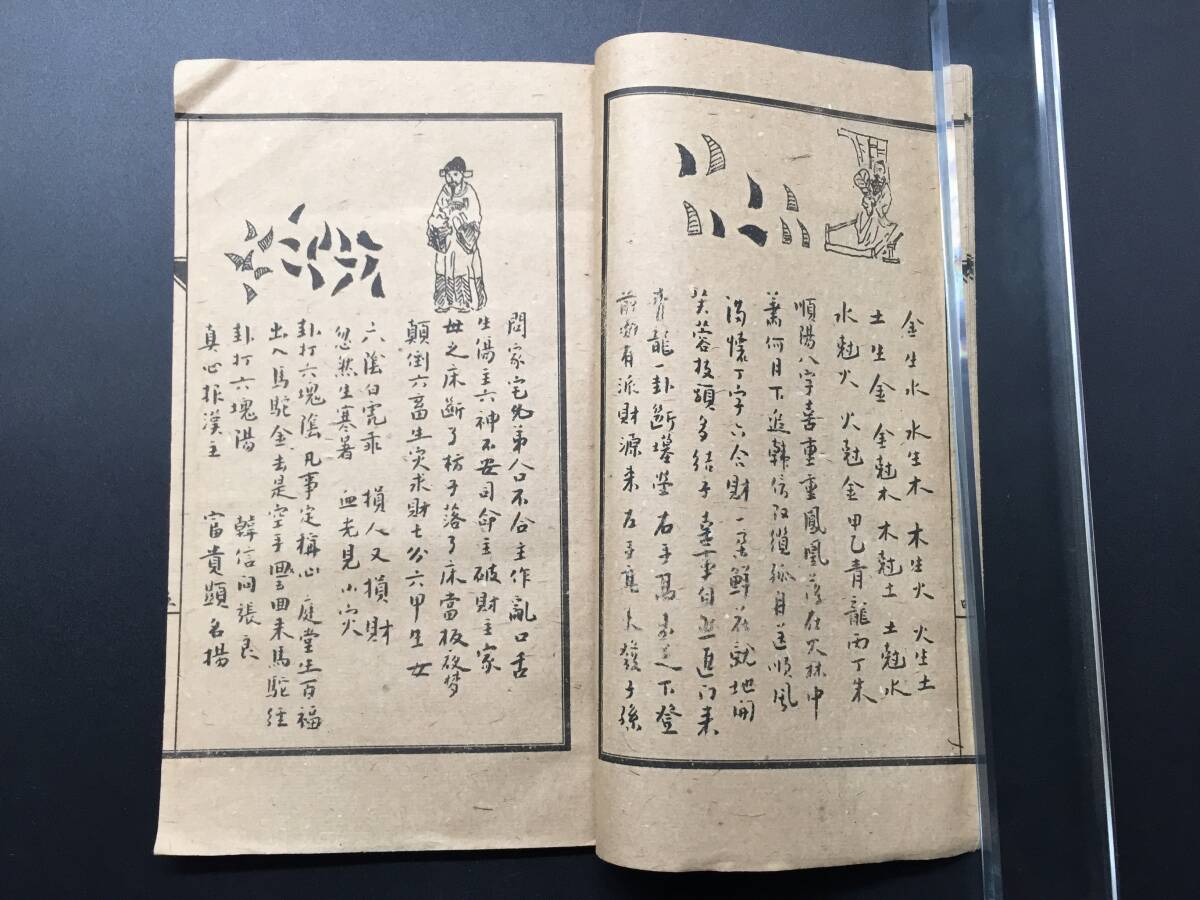 金生水 水生木 木生火 火生土
土生金 金尅木 木尅土 土尅水
水尅火 火尅金 甲乙青龍丙丁朱
順陽八字喜重重鳳凰落在火林中
蕭何月下追韓信 自送順風
懷丁字六合財一朵鮮花就地開
芙蓉枝頭多結子 進门来
青龍一卦斷墳塋右手 下登
有派財源来左手 大發子孫
四
問家宅兄弟人口不合主作亂口舌
生傷主六神不安司命主破財主家
母之床斷了枋子落了床當板夜梦
顛倒六畜生灾求財七分六甲生女
六陰白虎乖 損人又損財
忽然生寒暑 血光見小灾
卦打六塊陰凡事定稱心庭堂生百福
出入馬駝金去是空手 回来馬駝經
卦打六塊陽 韓信问張良
真心扶漢主 富貴顯名揚
五